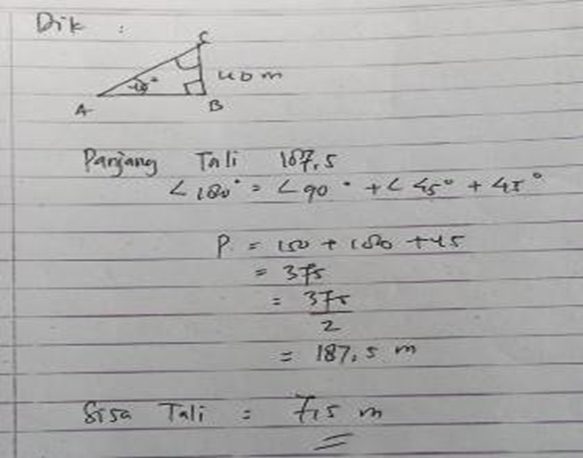 Dik :
C
40 m
A
B
Panjang Tali 187,5
∠180° = ∠90° + ∠45° + 45°
P = 150 + 180 + 45
= 375
= 375/2
= 187,5 m
Sisa Tali = 7,5 m